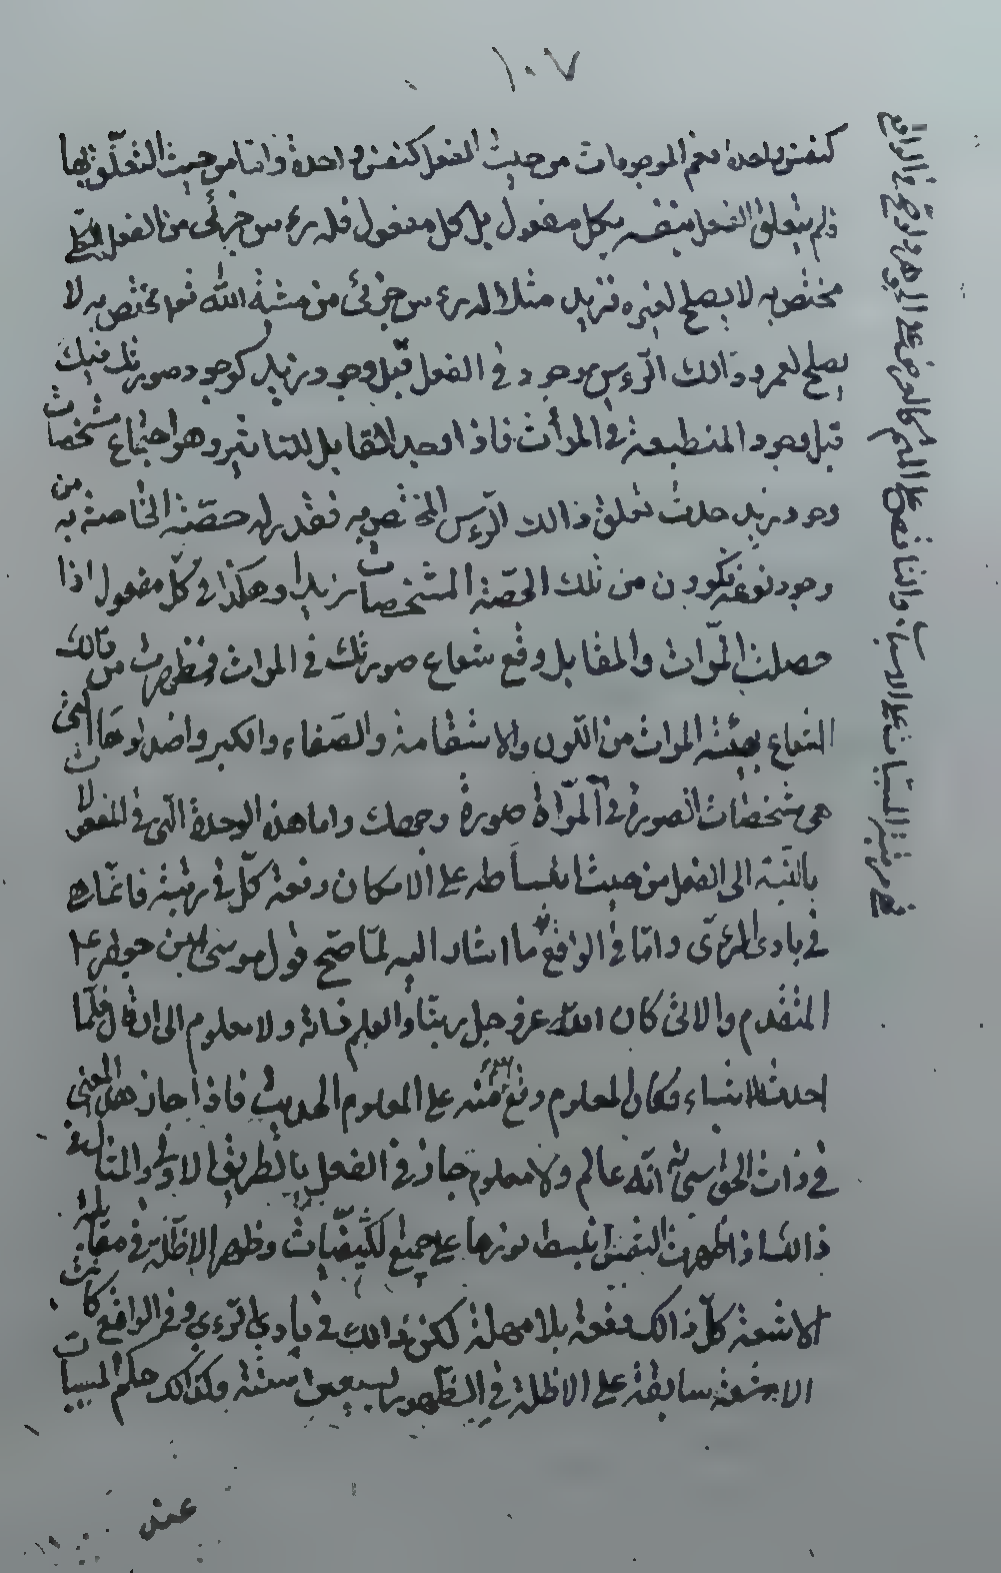 ١٠٧
كنفس واحدة فهم الموجودات من حيث الفعل كنفس واحدة واما من حيث التعلق بها
فلم يتعلق الفعل بنفسه بكل مفعول بل كل مفعول فله رءس جزئى من الفعل الكلى
مختص به لا يصلح لغيره فزيد مثلا له رءس جزئى من مشية الله فهو مختص به لا
يصلح لعمرو وذالك الرءس موجود فى الفعل قبل وجود زيد كوجود صورتك فيك
قبل وجود المنطبعة فى المرآت فاذا وجد القابل للتاثير وهو اجتماع مشخصات
وجود زيد حدث تعلق ذالك الرءس المختص به فقدر له حصته الخاصة به من
وجود نوعه فكون من تلك الحصة المشخصات زيدا وهكذا فى كل مفعول اذا
حصلت المرات والمقابل وقع شعاع صورتك فى المرات وظهرت من ذالك
الشعاع بهيئة المرات من اللون والاستقامة والصفاء والكبر واضدادها التى
هى مشخصات الصورة فى المرآة صورة وجهك واما هذه الوحدة التى فى المفعولات
بالنسبة الى الفعل من حيث انبساطه على الامكان دفعة كل فى رتبته فانما هى
فى بادى الرءى واما فى الواقع فما اشار اليه لما صح قول موسى ابن جعفر ع
المتقدم والاتى كان الله عز وجل ربنا والعلم ذاته ولا معلوم الى ان قال فلما
احدث الاشياء وكان المعلوم وقع العلم منه على المعلوم الحديث فاذا جاز هذا المعنى
فى ذات الحق سبحانه انه عالم ولا معلوم جاز فى الفعل بالطريق الاولى والمثال فى
ذالك اذا ظهرت الشمس انبسط نورها على جميع الكثيفات وظهر الاظلة فى مقابلة
الاشعة كل ذالك دفعة بلا مهلة لكن ذالك فى بادى الرءى وفى الواقع كانت
الاشعة سابقة على الاظلة فى الظهور بسبعين سنة وكذالك حكم المسببات
عند